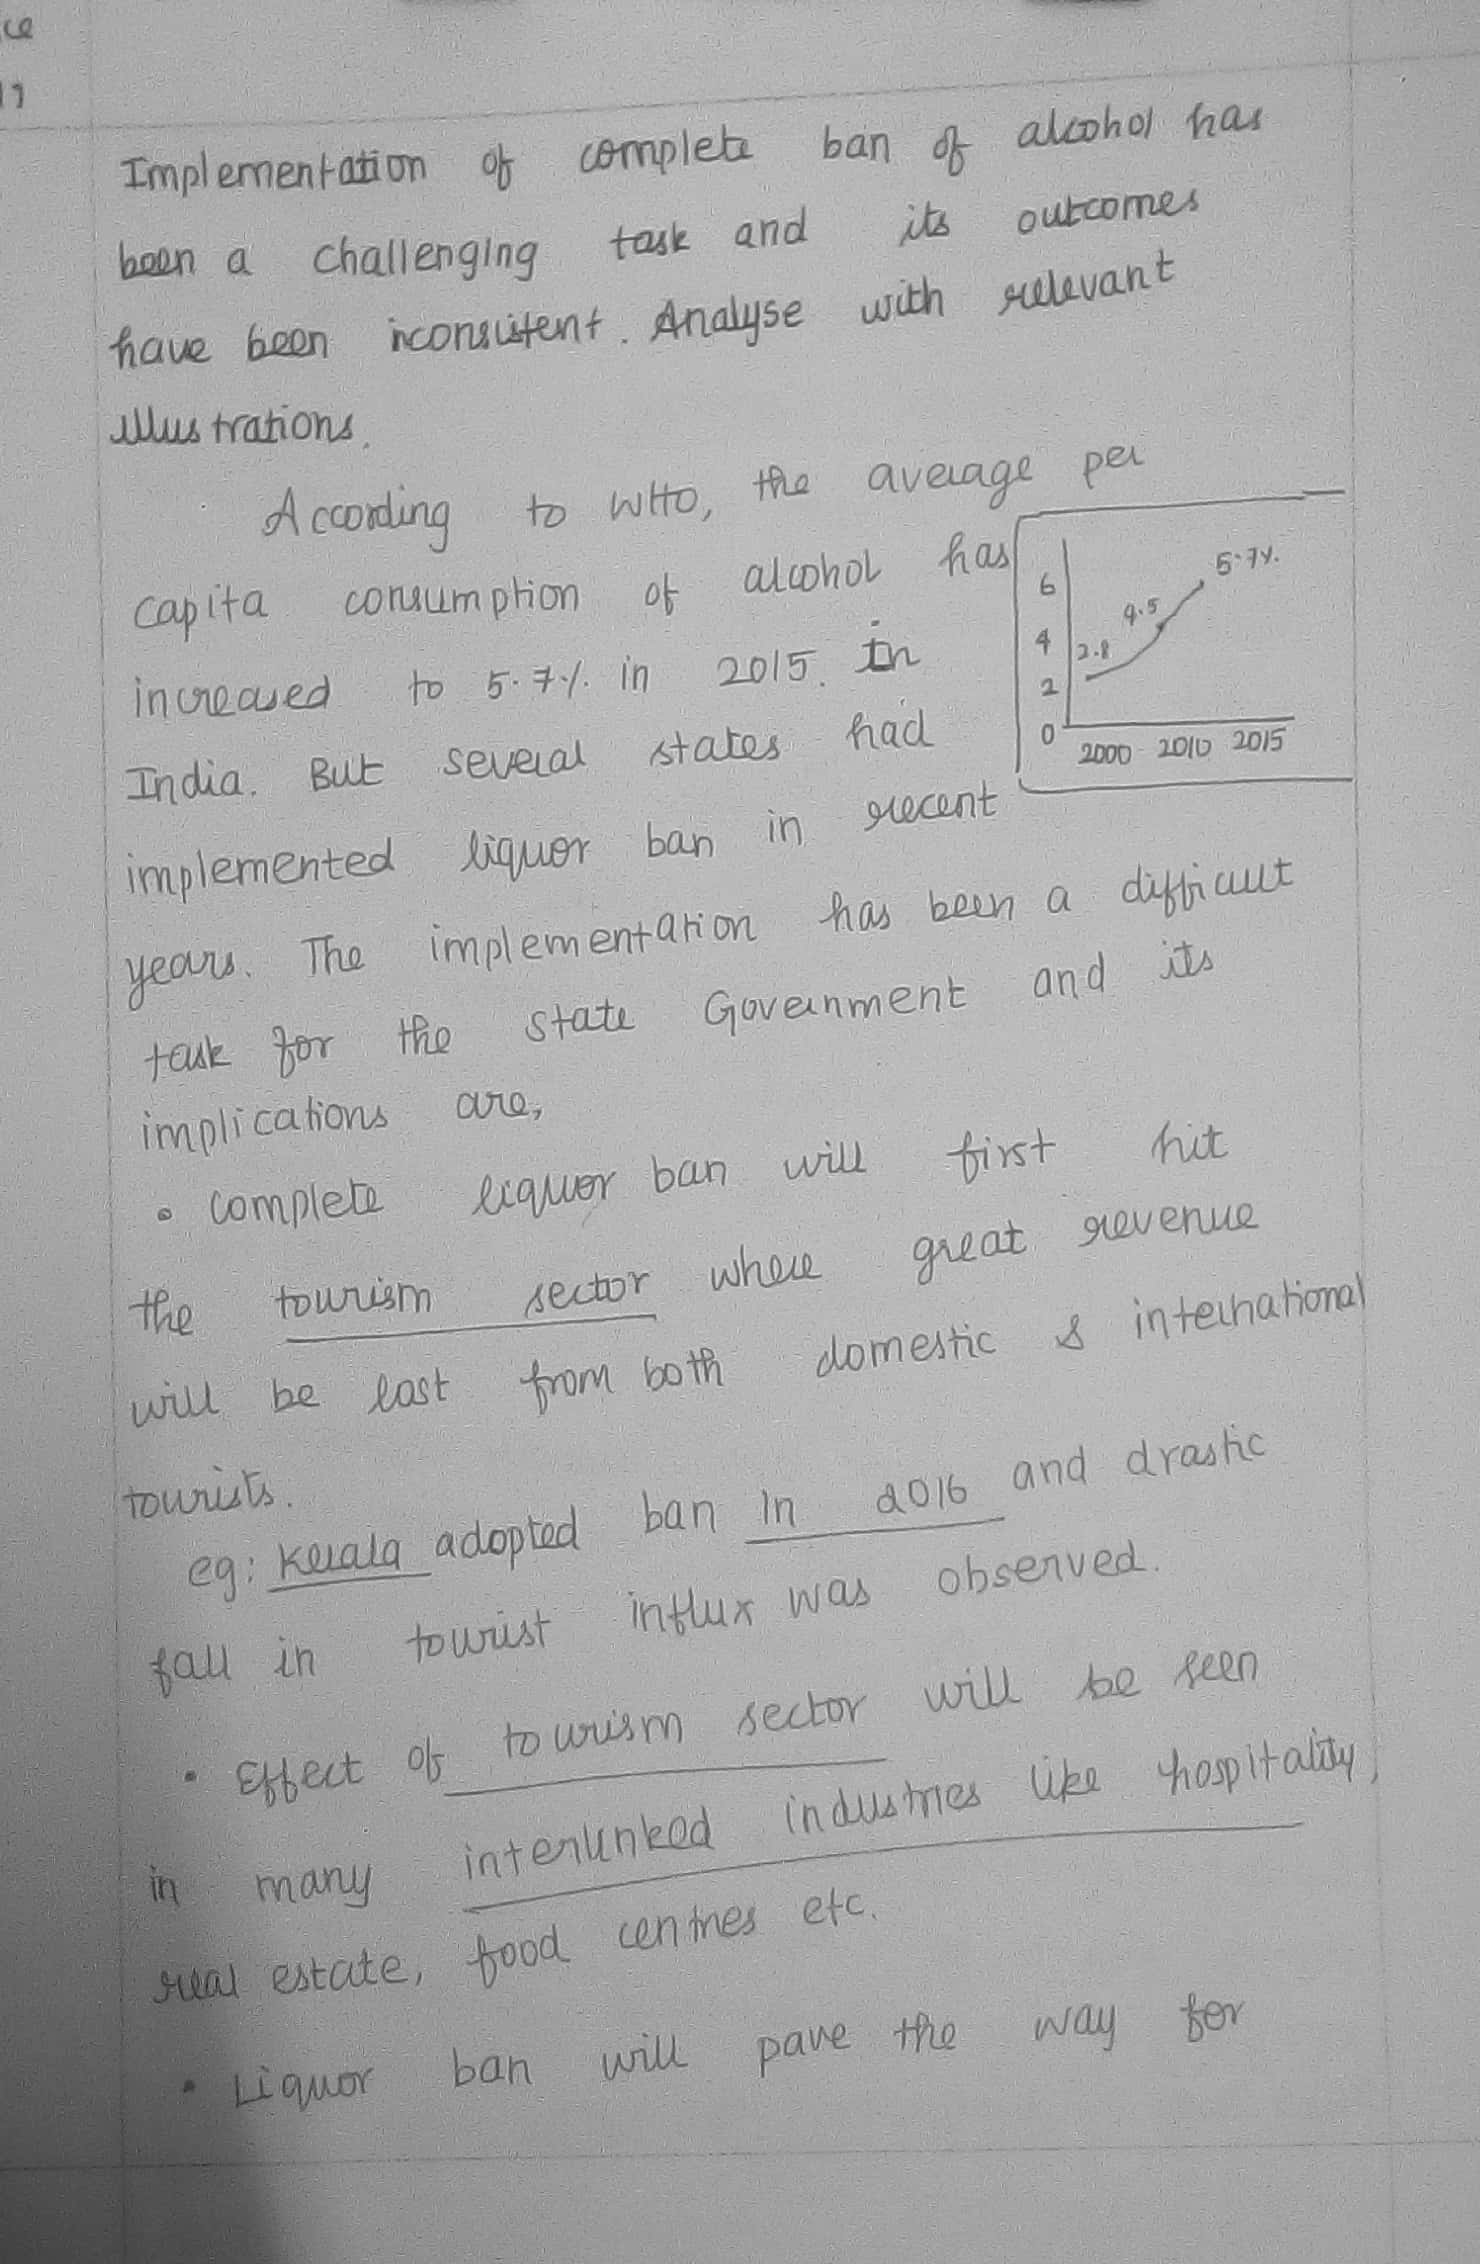 ce
17
Implementation of complete ban of alcohol has
been a challenging task and its outcomes
have been inconsistent. Analyse with relevant
illustrations.
According to WHO, the average per
capita consumption of alcohol has
increased to 5.7% in 2015. In
India. But several states had
implemented liquor ban in recent
years. The implementation has been a difficult
task for the state Government and its
implications are,
6
4
2
0
2.8
4.5
5.7%.
2000 2010 2015
• Complete liquor ban will first hit
the tourism sector where great revenue
will be lost from both domestic & international
tourists.
eg: Kerala adopted ban in 2016 and drastic
fall in tourist influx was observed.
• Effect of tourism sector will be seen
in many interlinked industries like hospitality,
real estate, food centres etc.
• Liquor ban will pave the way for